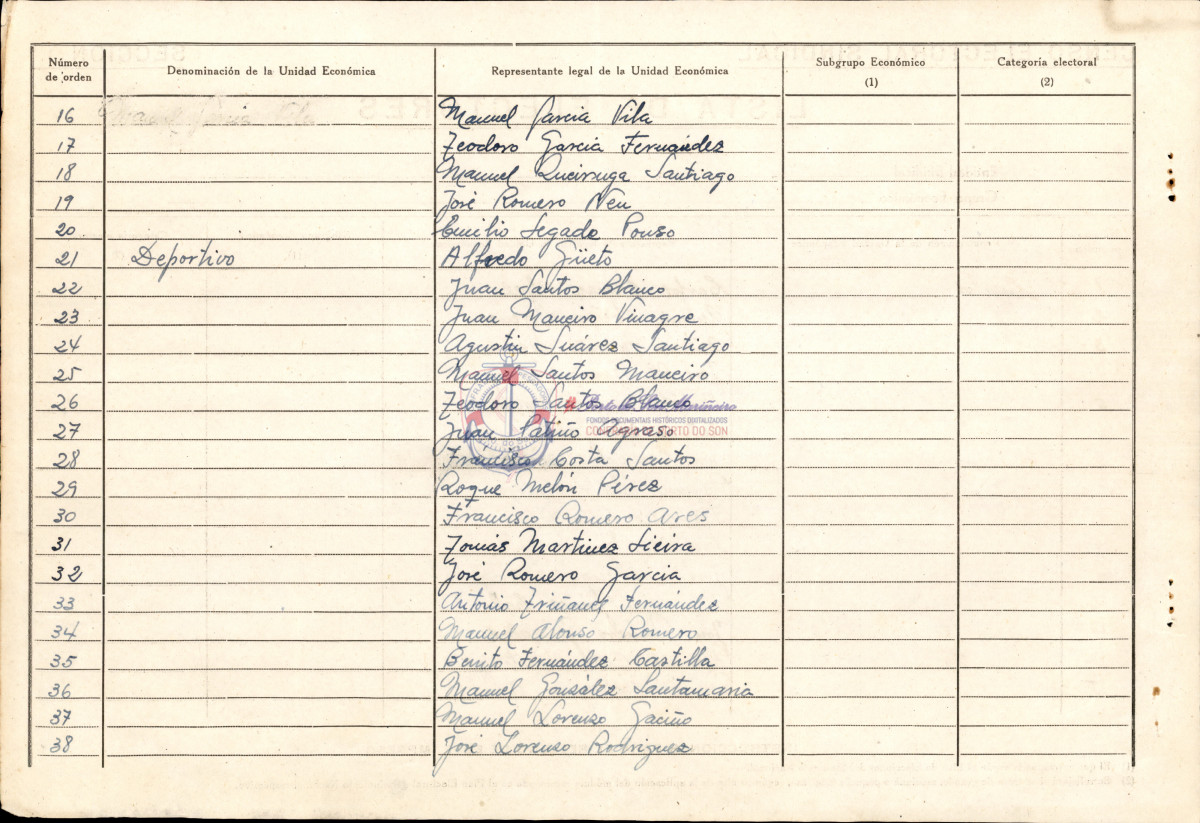 Número de orden Denominación de la Unidad Económica Representante legal de la Unidad Económica Subgrupo Económico (1) Categoría electoral (2)
16 Manuel García Vila Manuel García Vila
17 Teodoro García Fernández
18 Manuel Queiruga Santiago
19 José Romero Neu
20 Emilio Segade Pouso
21 Deportivo Alfredo Güeto
22 Juan Santos Blanco
23 Juan Maneiro Vinagre
24 Agustín Suárez Santiago
25 Manuel Santos Maneiro
26 Teodoro Santos Blanco
FONDOS DOCUMENTAIS HISTÓRICOS DIXITALIZADOS
27 Juan Patiño Agraso
28 Francisco Costa Santos
29 Roque Melón Pérez
30 Francisco Romero Ares
31 Tomás Martínez Sieira
32 José Romero García
33 Antonio Triñanes Fernández
34 Manuel Alonso Romero
35 Benito Fernández Castilla
36 Manuel González Santamaria
37 Manuel Lorenzo Gaciño
38 José Lorenzo Rodríguez